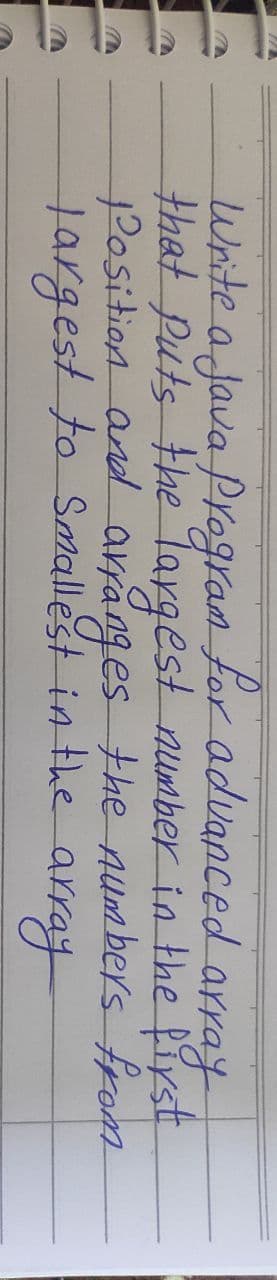 Write a Java program for advanced array
that puts the largest number in the first
Position and arranges the numbers from
largest to smallest in the array